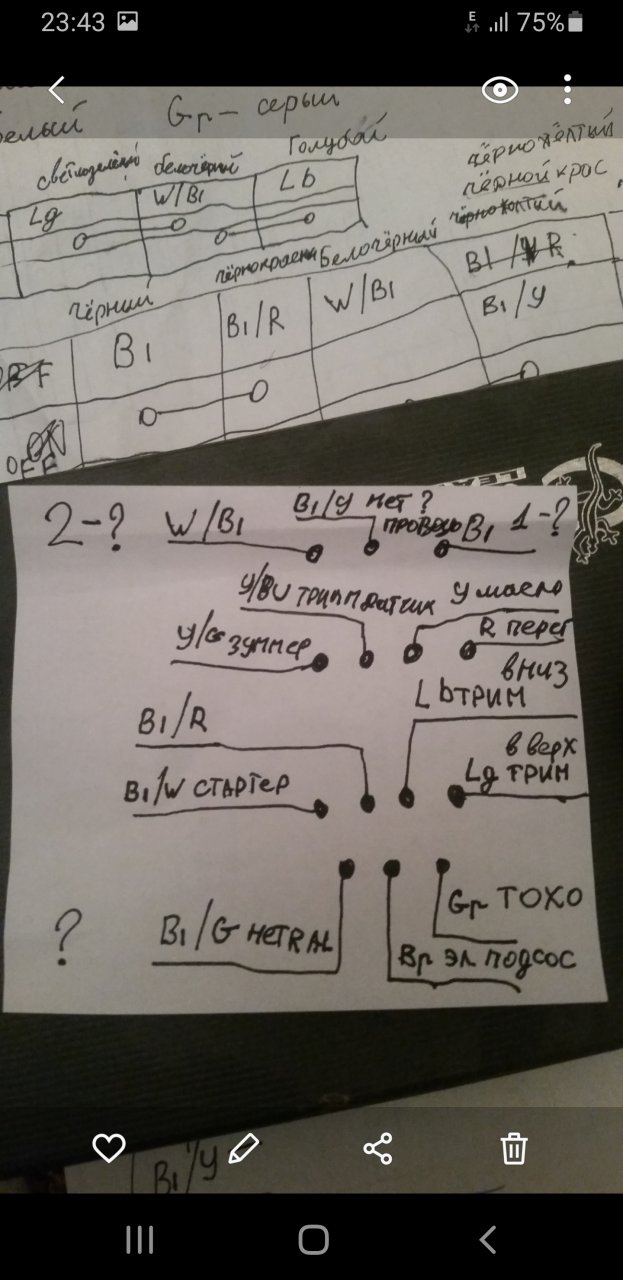 23:43
E
75%
белый Gr – серый
светлозелёный белочёрный Голубой
Lg W/Bl Lb
чёрножёлтый
чёрной крас
чёрножолтый
чёрний чёрнокрасны Белочёрный
Bl Bl/R W/Bl Bl/R
Bl/Y
OFF
2-? W/Bl Bl/Y нет? проводо Bl 1-?
Y/BU трим датчик Y масло
Y/G зуммер R перег
вниз
Lb трим
Bl/R
вверх
Bl/W стартер Lg трим
? Bl/G нетRAL Gr тохо
Br эл подсос
Bl/Y